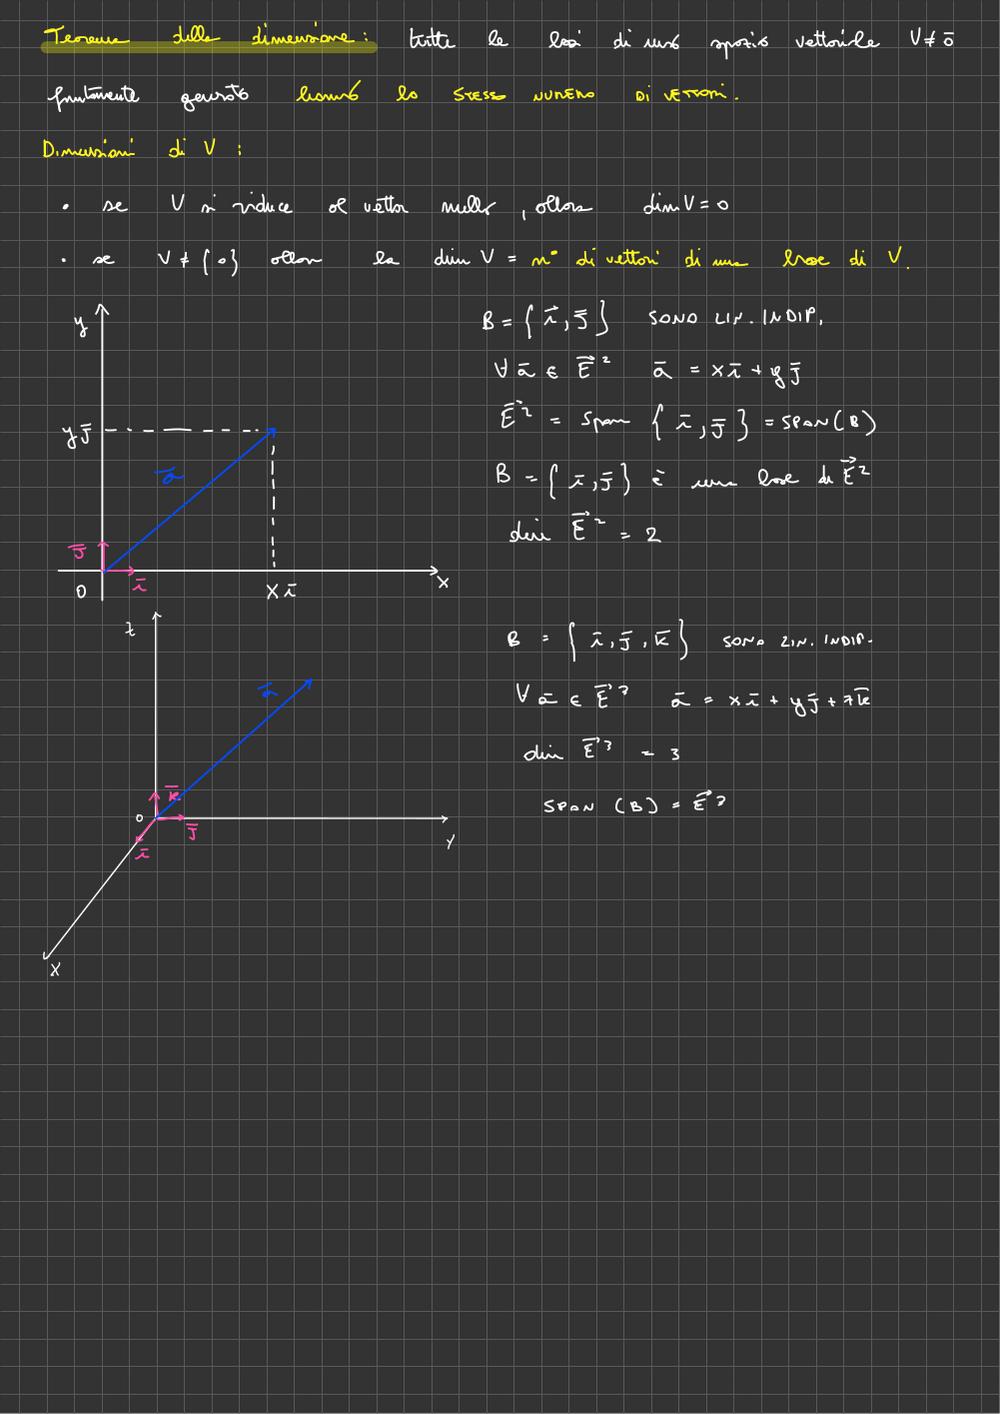 Teorema della dimensione: tutte le basi di uno spazio vettoriale V ≠ ō
finitamente generato hanno lo STESSO NUMERO DI VETTORI.
Dimensioni di V :
• se V si riduce al vettor nullo, allora dim V = 0
• se V ≠ {0} allora la dim V = n° di vettori di una base di V.
y
B = {i⃗, j̄} SONO LIN. INDIP.
∀ ā ∈ E⃗² ā = x ī + y j̄
E⃗² = Span {ī, j̄} = SPAN(B)
y j̄
ā
B = {ī, j̄} è una base di E⃗²
dim E⃗² = 2
j̄
0 ī x ī x
z
B = {ī, j̄, k̄} SONO LIN. INDIP.
∀ ā ∈ E⃗³ ā = x ī + y j̄ + z k̄
ā
dim E⃗³ = 3
SPAN (B) = E⃗³
k̄
0 j̄ y
ī
x